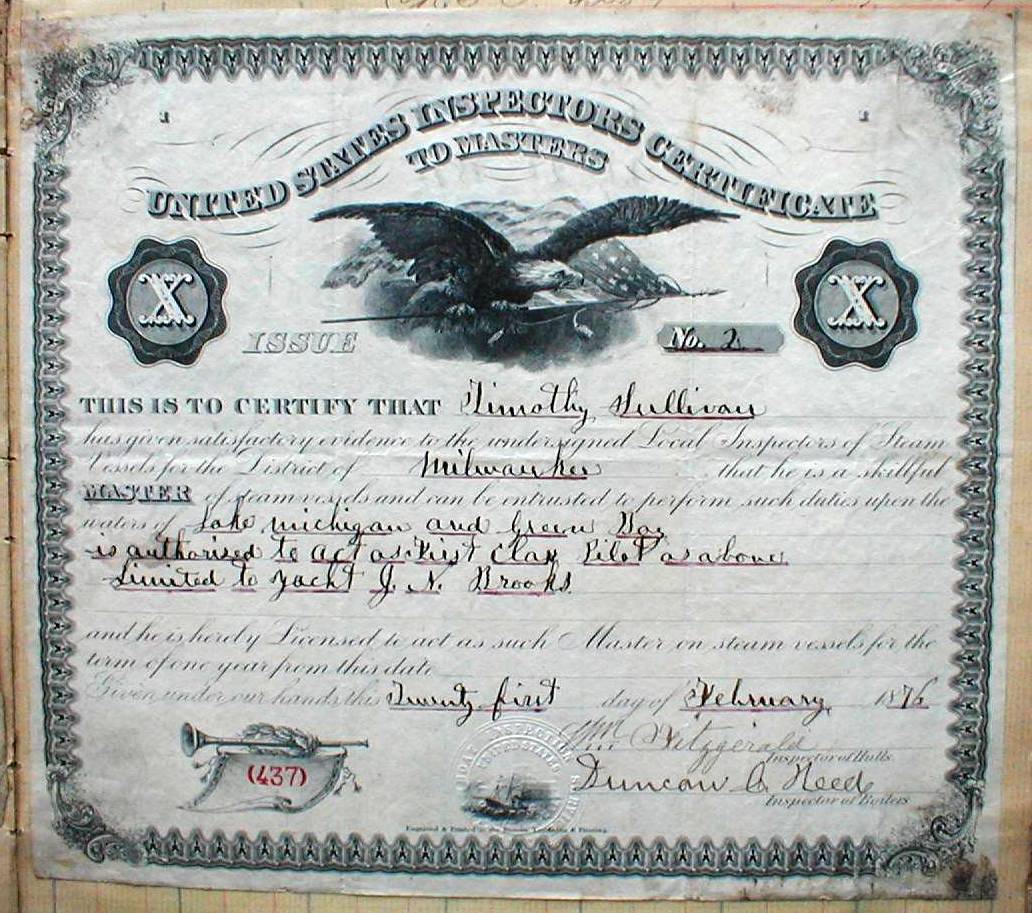 1 1
UNITED STATES INSPECTORS CERTIFICATE
TO MASTERS
X X
ISSUE No. 2
THIS IS TO CERTIFY THAT Timothy Sullivan
has given satisfactory evidence to the undersigned Local Inspectors of Steam
Vessels for the District of Milwaukee that he is a skillful
MASTER of steam vessels and can be intrusted to perform such duties upon the
waters of Lake Michigan and Green Bay
is authorised to act as First Class Pilot as above
Limited to Yacht J. N. Brooks
and he is hereby Licensed to act as such Master on steam vessels for the
term of one year from this date
Given under our hands this Twenty first day of February 1876
Wm Fitzgerald
Inspector of Hulls
(437)
Duncan C. Reed
Inspector of Boilers
Engraved & Printed at the Bureau, Engraving & Printing.